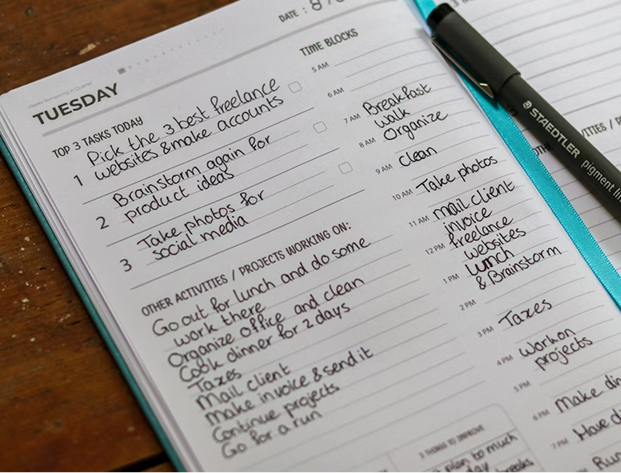 DATE :
TUESDAY
TOP 3 TASKS TODAY
1 Pick the 3 best freelance
websites & make accounts
2 Brainstorm again for
product ideas
3 Take photos for
social media
OTHER ACTIVITIES / PROJECTS WORKING ON:
Go out for lunch and do some
work there
Organize office and clean
Cook dinner for 2 days
Taxes
Mail client
Make invoice & send it
Continue projects
Go for a run
TIME BLOCKS
5 AM
6 AM
7 AM Breakfast
Walk
8 AM Organize
9 AM Clean
10 AM Take photos
11 AM Mail client
invoice
12 PM freelance
websites
1 PM Lunch
& Brainstorm
2 PM
3 PM Taxes
4 PM Work on
projects
5 PM
6 PM Make din
7 PM Have di
Run
3 THINGS TO IMPROVE
plan to much
STAEDTLER
pigment lin